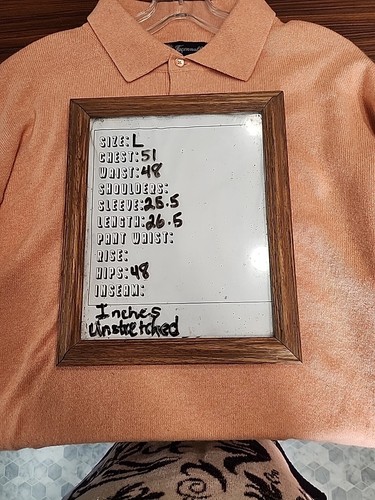 SIZE: L
CHEST: 51
WAIST: 48
SHOULDERS:
SLEEVE: 25.5
LENGTH: 26.5
PANT WAIST:
RISE:
HIPS: 48
INSEAM:
Inches
unstretched